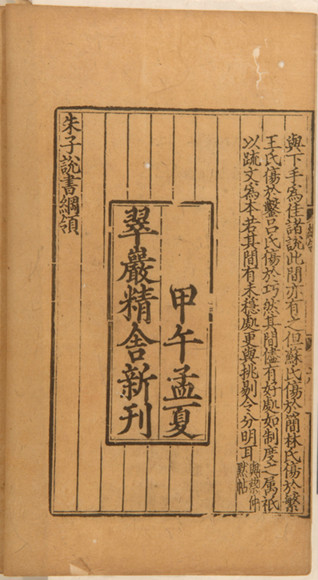 與下手為佳諸說此間亦有之但蘇氏傷於簡林氏傷於繁
王氏傷於鑿呂氏傷於巧然其間儘有好處如制度之属祇
以疏文為本若其間有未穩處更與挑剔令分明耳
與蔡仲
默帖
甲午孟夏
翠巖精舍新刊
朱子説書綱領